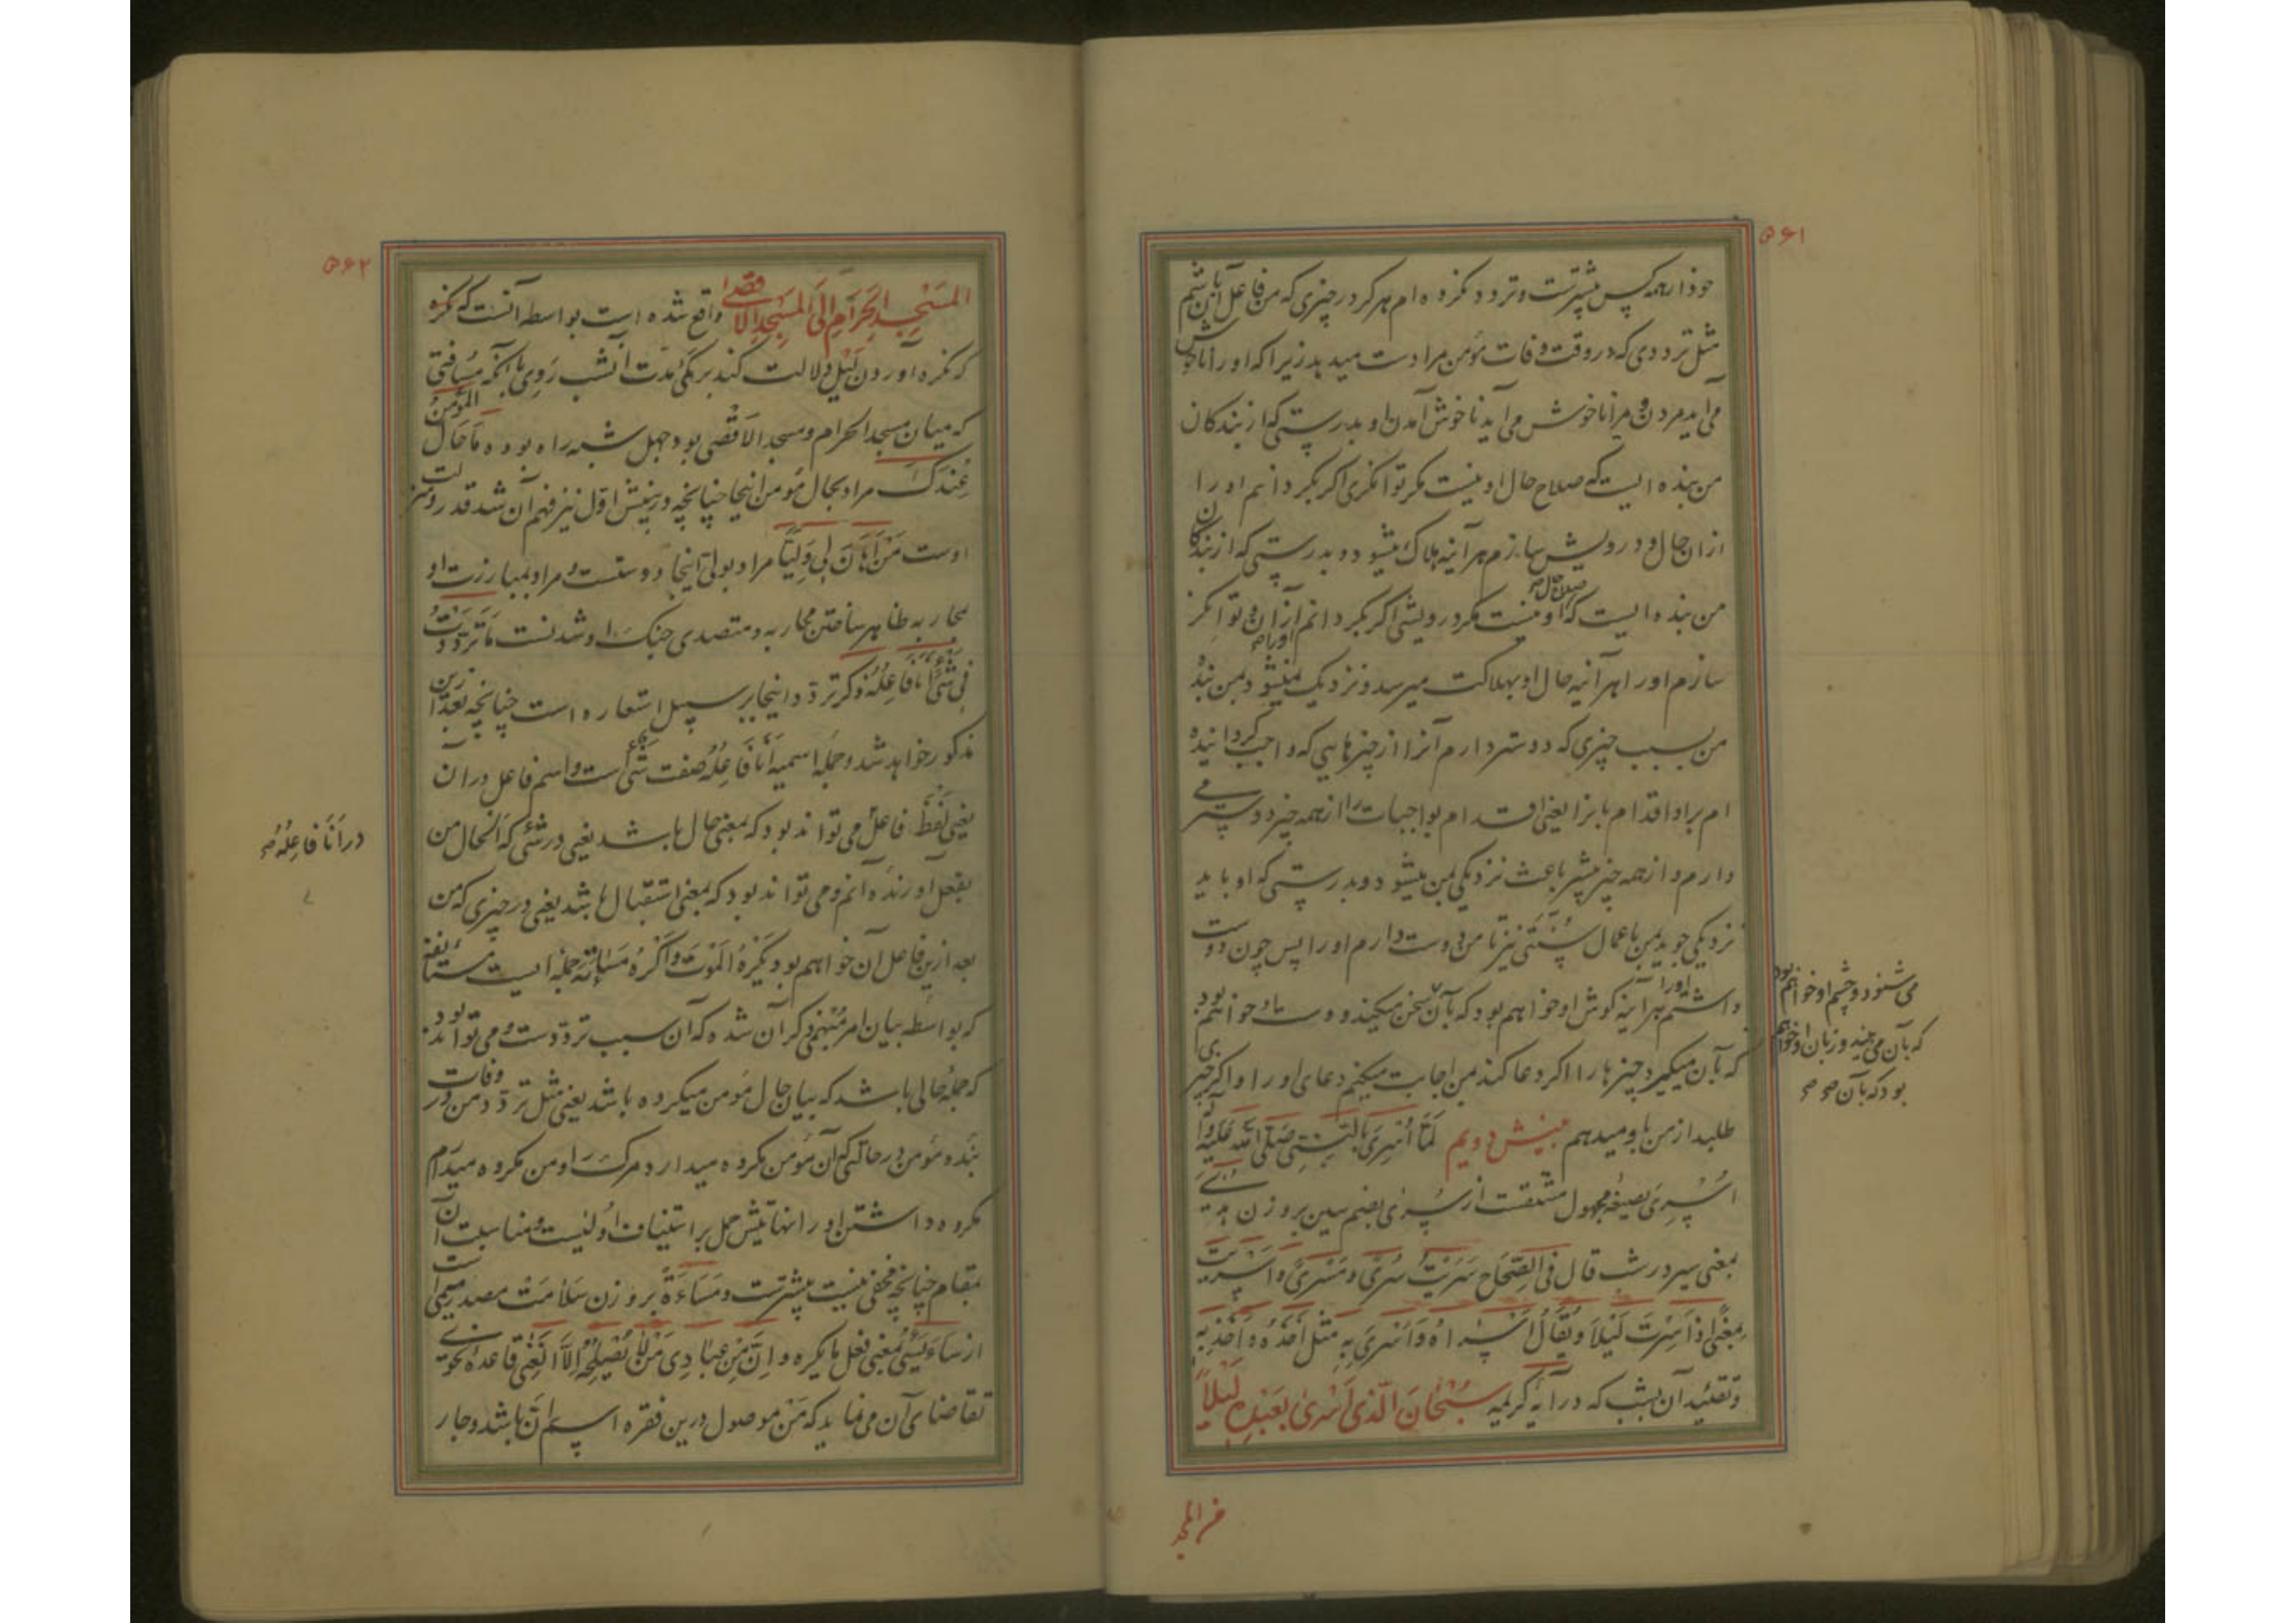 ۵۶۱
خود از همه کس پیشترست و تردد نکرده ام هرگز در چیزی که من فاعل آن باشم
مثل ترددی که در وقت وفات مؤمن مرا دست میدهد زیرا که او را ناخوش
می آید مردن و مرا ناخوش می آید ناخوش آمدن او و بدرستی که از بندکان
من بنده ایست که صلاح حال او نیست مکر توانکری اکر بکردانم او را
ازان حال و درویش سازم هرآینه هلاک میشود و بدرستی که از بندکان
من بنده ایست که صلاح حال او نیست مکر درویشی اکر بکردانم او را ازان و توانکر
سازم او را هرآینه حال او بهلاکت میرسد و نزدیک نمیشود بمن بنده
من بسبب چیزی که دوستر دارم آنرا از چیزهایی که واجب کردانیده
ام براو اقدام بانرا یعنی اقدام بواجبات را از همه چیز دوستر می
دارم و از همه چیز بیشتر باعث نزدیکی بمن میشود و بدرستی که او باید
نزدیکی جوید بمن باعمال سنتی نیز تا من دوست دارم او را پس چون دوست
داشتم او را هرآینه کوش او خواهم بود که بآن سخن میکند و دست او خواهم بود
که بآن میکیرد چیزها را اکر دعا کند من اجابت میکنم دعای او را و اکر چیزی
طلبد از من باو میدهم بینش دویم لَمّا اُسْرِیَ بِالنَّبِیِّ صَلَّی اللّه عَلَیْهِ وَآلِهِ
اُسْرِیَ بصیغه مجهول مشتقست از سُری بضم سین بر وزن هُدی
بمعنی سیر در شب قال فی الصِّحاح سَرَیْتُ سُریً و مَسْریً و اَسْرَیْتُ
بمعنی اذا سِرْتَ لَیْلاً وَ یُقالُ اَسْراهُ وَ اَسْری بِهِ مثل اَخَذَهُ وَ اَخَذَ بِه
و تقیید آن بشب که در آیه کریمه سُبْحانَ الَّذی اَسْری بِعَبْدِهِ لَیْلاً
می شنود و چشم او خواهم بود
که بآن می بیند و زبان او خواهم
بود که بآن صح صح
من المسجد
۵۶۲
المَسْجِدِ الحَرامِ اِلَی المَسْجِدِ الاَقْصی واقع شده است بواسطه آنست که نکره
که نکره آوردن لَیْل دلالت کند بر کمی مدت آنشب رَوی باآنکه مسافتی
که میان مسجد الحرام و مسجد الاقصی بود چهل شبه راه بوده ما حال المؤمن
عِنْدَکَ مراد بحال مؤمن اینجا چنانچه در بینش اول نیز فهم آن شد قدر و منزلت
اوست مَنْ اَهانَ لِی وَلِیّاً مراد بولی اینجا دوستست و مراد بمبارزت او
بمحاربه ظاهر ساختن محاربه و متصدی جنک او شدنست ما تَرَدَّدْتُ
فِی شَیْءٍ اَنَا فاعِلُهُ ذکر تردد اینجا بر سبیل استعاره است چنانچه بعد ازین
مذکور خواهد شد و جمله اسمیه اَنَا فاعِلُهُ صفت شیء است و اسم فاعل در ان
یعنی لفظ فاعل می تواند بود که بمعنی حال باشد یعنی در شیء که الحال من
بفعل آورنده آنم و می تواند بود که بمعنی استقبال باشد یعنی در چیزی که من
بعد ازین فاعل آن خواهم بود یَکْرَهُ المَوْتَ وَ اَکْرَهُ مَساءَتَهُ جمله ایست مستأنفه
که بواسطه بیان امر مبهم ذکر آن شده که آن سبب ترددست و می تواند بود
که جمله حالی باشد که بیان حال مؤمن میکرده باشد یعنی مثل تردد من در وفات
بنده مؤمن در حالتی که آن مؤمن مکروه میدارد مرک را و من مکروه میدارم
مکروه داشتن او را نهایتش حمل بر استیناف اولیست و مناسبت آن
بمقام چنانچه مخفی نیست بیشترست و مَساءَةً بر وزن سَلامَتْ مصدر میمی است
از ساءَ یَسُیءُ بمعنی فعل ما یکره و اِنَّ مِنْ عِبادِی مَنْ لا یُصْلِحُهُ اِلّا الْغِنی قاعده نحوی
تقاضای آن می نماید که مَنْ موصول درین فقره اسم اِنَّ باشد و جار
در اَنَا فاعِلُهُ صح